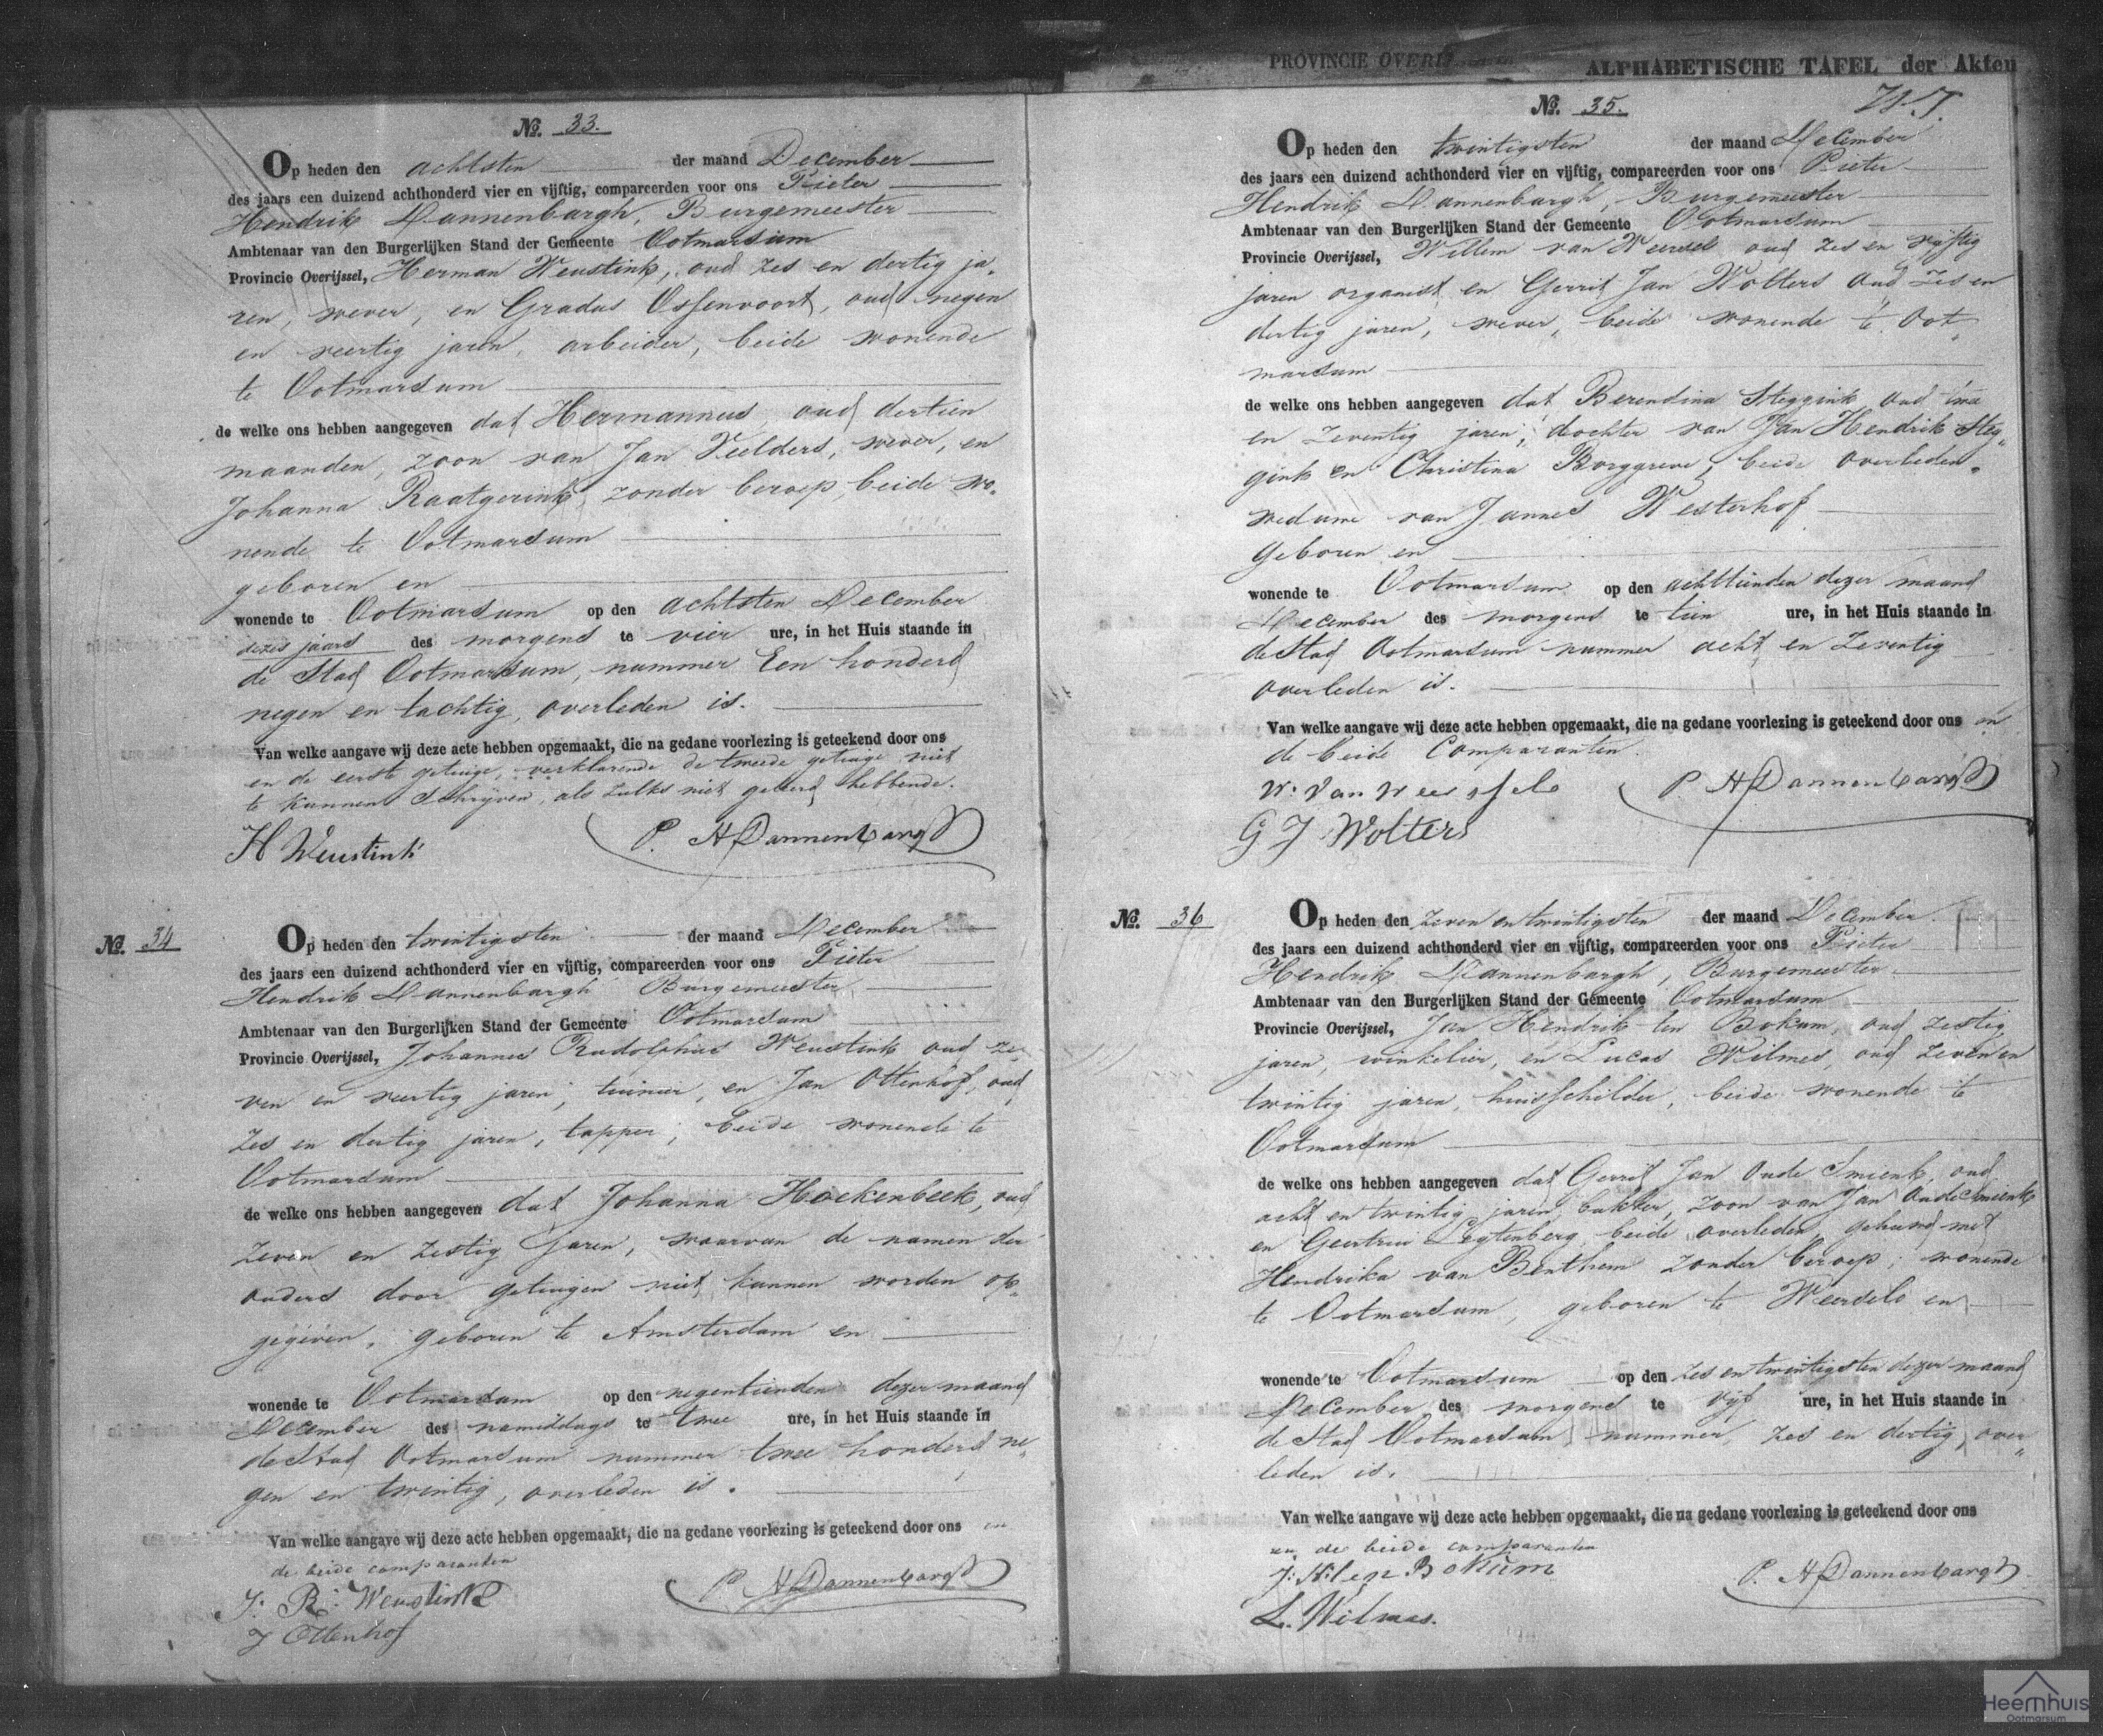 No. 33.
Op heden den achtsten der maand December
des jaars een duizend achthonderd vier en vijftig, compareerden voor ons Pieter
Hendrik Dannenbargh, Burgemeester
Ambtenaar van den Burgerlijken Stand der Gemeente Ootmarsum
Provincie Overijssel, Herman Weustink, oud zes en dertig ja,
ren, wever, en Gradus Ossenvoort, oud negen
en veertig jaren, arbeider, beide wonende
te Ootmarsum
de welke ons hebben aangegeven dat Hermannus oud dertien
maanden, zoon van Jan Veelders, wever, en
Johanna Raatgerink, zonder beroep, beide wo,
nende te Ootmarsum
geboren en
wonende te Ootmarsum op den achtsten December
dezes jaars des morgens te vier ure, in het Huis staande in
de Stad Ootmarsum, nummer Een honderd
negen en tachtig, overleden is.
Van welke aangave wij deze acte hebben opgemaakt, die na gedane voorlezing is geteekend door ons
en de eerste getuige, verklarende de tweede getuige niet
te kunnen schrijven, als zulks niet geleerd hebbende.
H Weustink P. H Dannenbargh
No. 34
Op heden den twintigsten der maand December
des jaars een duizend achthonderd vier en vijftig, compareerden voor ons Pieter
Hendrik Dannenbargh Burgemeester
Ambtenaar van den Burgerlijken Stand der Gemeente Ootmarsum
Provincie Overijssel, Johannes Rudolphus Weustink oud ze,
ven en veertig jaren, tuinier, en Jan Ottenhof, oud
zes en dertig jaren, tapper, beide wonende te
Ootmarsum
de welke ons hebben aangegeven dat Johanna Hoekenbeek, oud
zeven en zestig jaren, waarvan de namen der
ouders door getuigen niet kunnen worden op,
gegeven, geboren te Amsterdam en
wonende te Ootmarsum op den negentienden dezer maand
December des namiddags te twee ure, in het Huis staande in
de Stad Ootmarsum nummer twee honderd ne,
gen en twintig, overleden is.
Van welke aangave wij deze acte hebben opgemaakt, die na gedane voorlezing is geteekend door ons en
de beide comparanten
J. R. Weustink P. H Dannenbargh
J Ottenhof
PROVINCIE OVERIJ
ALPHABETISCHE TAFEL der Akten
No. 35.
Op heden den twintigsten der maand December
des jaars een duizend achthonderd vier en vijftig, compareerden voor ons Pieter
Hendrik Dannenbargh, Burgemeester
Ambtenaar van den Burgerlijken Stand der Gemeente Ootmarsum
Provincie Overijssel, Willem van Weersel oud zes en vijftig
jaren organist en Gerrit Jan Wolters oud zes en
dertig jaren, wever, beide wonende te Oot
marsum
de welke ons hebben aangegeven dat Berendina Steggink oud twee
en zeventig jaren, dochter van Jan Hendrik Steg,
gink en Christina Borggreve, beide overleden,
weduwe van Jannes Westerhof
geboren en
wonende te Ootmarsum op den achttienden dezer maand
December des morgens te tien ure, in het Huis staande in
de Stad Ootmarsum nummer acht en zeventig
overleden is.
Van welke aangave wij deze acte hebben opgemaakt, die na gedane voorlezing is geteekend door ons en
de beide Comparanten.
P. H Dannenbargh
G J Wolters
No. 36
Op heden den zeven en twintigsten der maand December
des jaars een duizend achthonderd vier en vijftig, compareerden voor ons Pieter
Hendrik Dannenbargh, Burgemeester
Ambtenaar van den Burgerlijken Stand der Gemeente Ootmarsum
Provincie Overijssel, Jan Hendrik ten Bokum, oud zestig
jaren, winkelier, en Lucas Wilmes, oud zeven en
twintig jaren, huisschilder, beide wonende te
Ootmarsum
de welke ons hebben aangegeven dat Gerrit Jan Oude Smienk, oud
acht en twintig jaren, bakker, zoon van Jan Oude Smienk
en Geertrui Leytenberg beide overleden, gehuwd met
Hendrika van Benthem zonder beroep, wonende
te Ootmarsum, geboren te Weerselo en
wonende te Ootmarsum op den zes en twintigsten dezer maand
December des morgens te vijf ure, in het Huis staande in
de Stad Ootmarsum nummer zes en dertig, over
leden is.
Van welke aangave wij deze acte hebben opgemaakt, die na gedane voorlezing is geteekend door ons
en de beide comparanten
J: H: ten Bokum P. H Dannenbargh
L. Wilmes.
Heemhuis
Ootmarsum